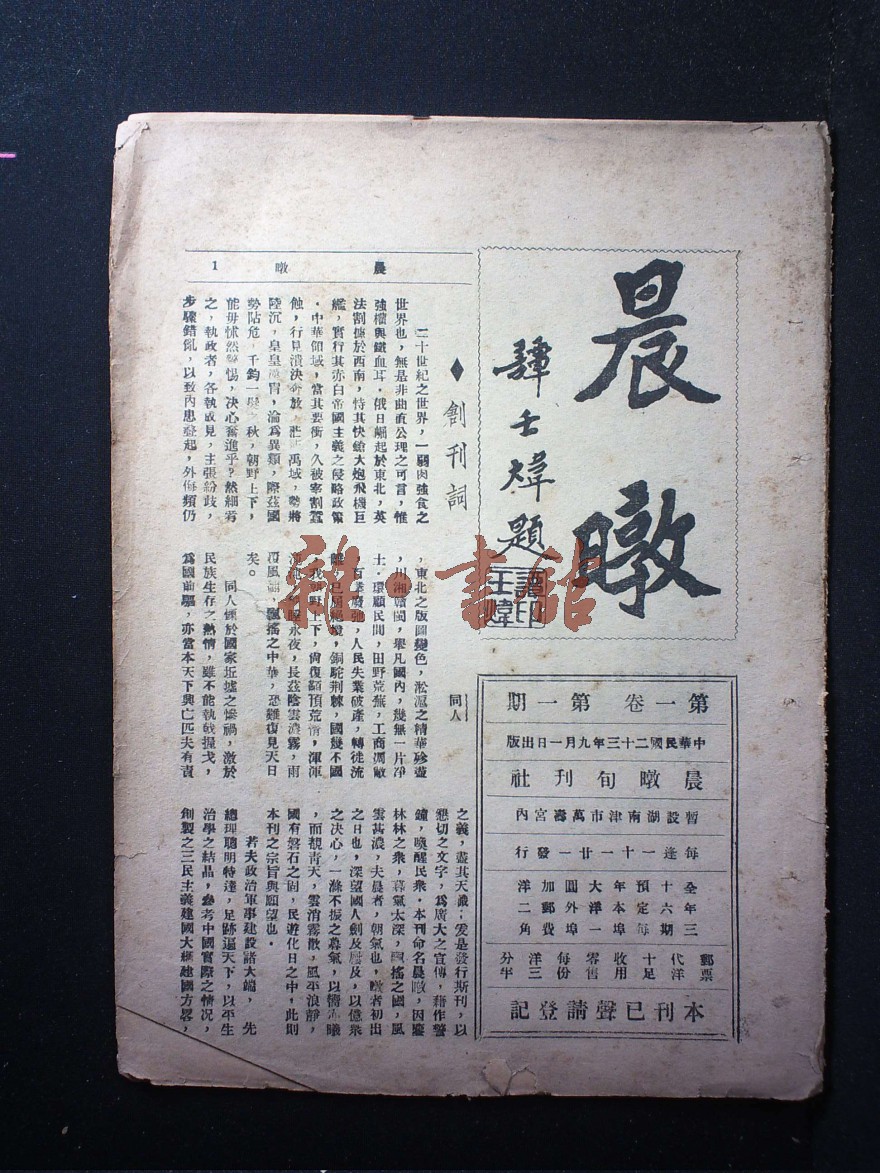 晨暾
譚士煒題
第一卷 第一期
中華民國二十三年九月一日出版
晨暾旬刊社
暫設湖南津市萬壽宮內
每逢一十一廿一發行
全年三
十六期
預定每
年本埠
大洋一
圓外埠
加郵費
洋二角
郵票
代洋
十足
收用
零售
每份
洋三
分半
本刊已聲請登記
晨 暾 1
◆創刊詞
同人
二十世紀之世界,一弱肉強食之
世界也,無是非曲直公理之可言,惟
強權與鐵血耳.俄日崛起於東北,英
法割據於西南,恃其快鎗大炮飛機巨
艦,實行其赤白帝國主義之侵略政策
.中華領域,當其要衝,久被宰割蠶
蝕,行見潰決奔放,莊嚴禹域,勢將
陸沉,皇皇胄,淪爲異類,際茲國
勢阽危,千鈞一髮之秋,朝野上下,
能毋怵然警惕,决心奮進乎?然細看
之,執政者,各執成見,主張紛歧,
步驟錯亂,以致內患登起,外侮頻仍
,東北之版圖變色,淞滬之精華殄盡
,川湘贛閩,舉凡國內,幾無一片净
土.環顧民間,田野荒蕪,工商凋敝
,百業廢弛,人民失業破產,轉徙流
離,已屆絕境,銅駝荆棘,國幾不國
,我朝野上下,尙復顢頇荒惰,渾渾
永夜,長茲陰雲濃霧,雨
覆風翻,飄搖之中華,恐難復見天日
矣。
同人懍於國家坵墟之慘禍,激於
民族生存之熱情,雖不能執戟握戈,
爲國前驅,亦當本天下興亡匹夫有責
之義,盡其天職;爰是發行斯刊,以
懇切之文字,爲廣大之宣傳,藉作警
鐘,喚醒民衆.本刊命名晨暾,因鑒
林林之衆,暮氣太深,飄搖之國,風
雲甚濃,夫晨者,朝氣也,暾者初出
之日也,深望國人劍及屨及,以億衆
之决心,一滌不振之暮氣,以儔海曦
,而覩青天,雲消霧散,風平浪靜,
國有磐石之固,民遊化日之中,此則
本刊之宗旨與願望也.
若夫政治軍事建設諸大端, 先
總理聰明特達,足跡遍天下,以平生
治學之結晶,參考中國實際之情況,
創製之三民主義建國大綱建國方畧,
雜·書館